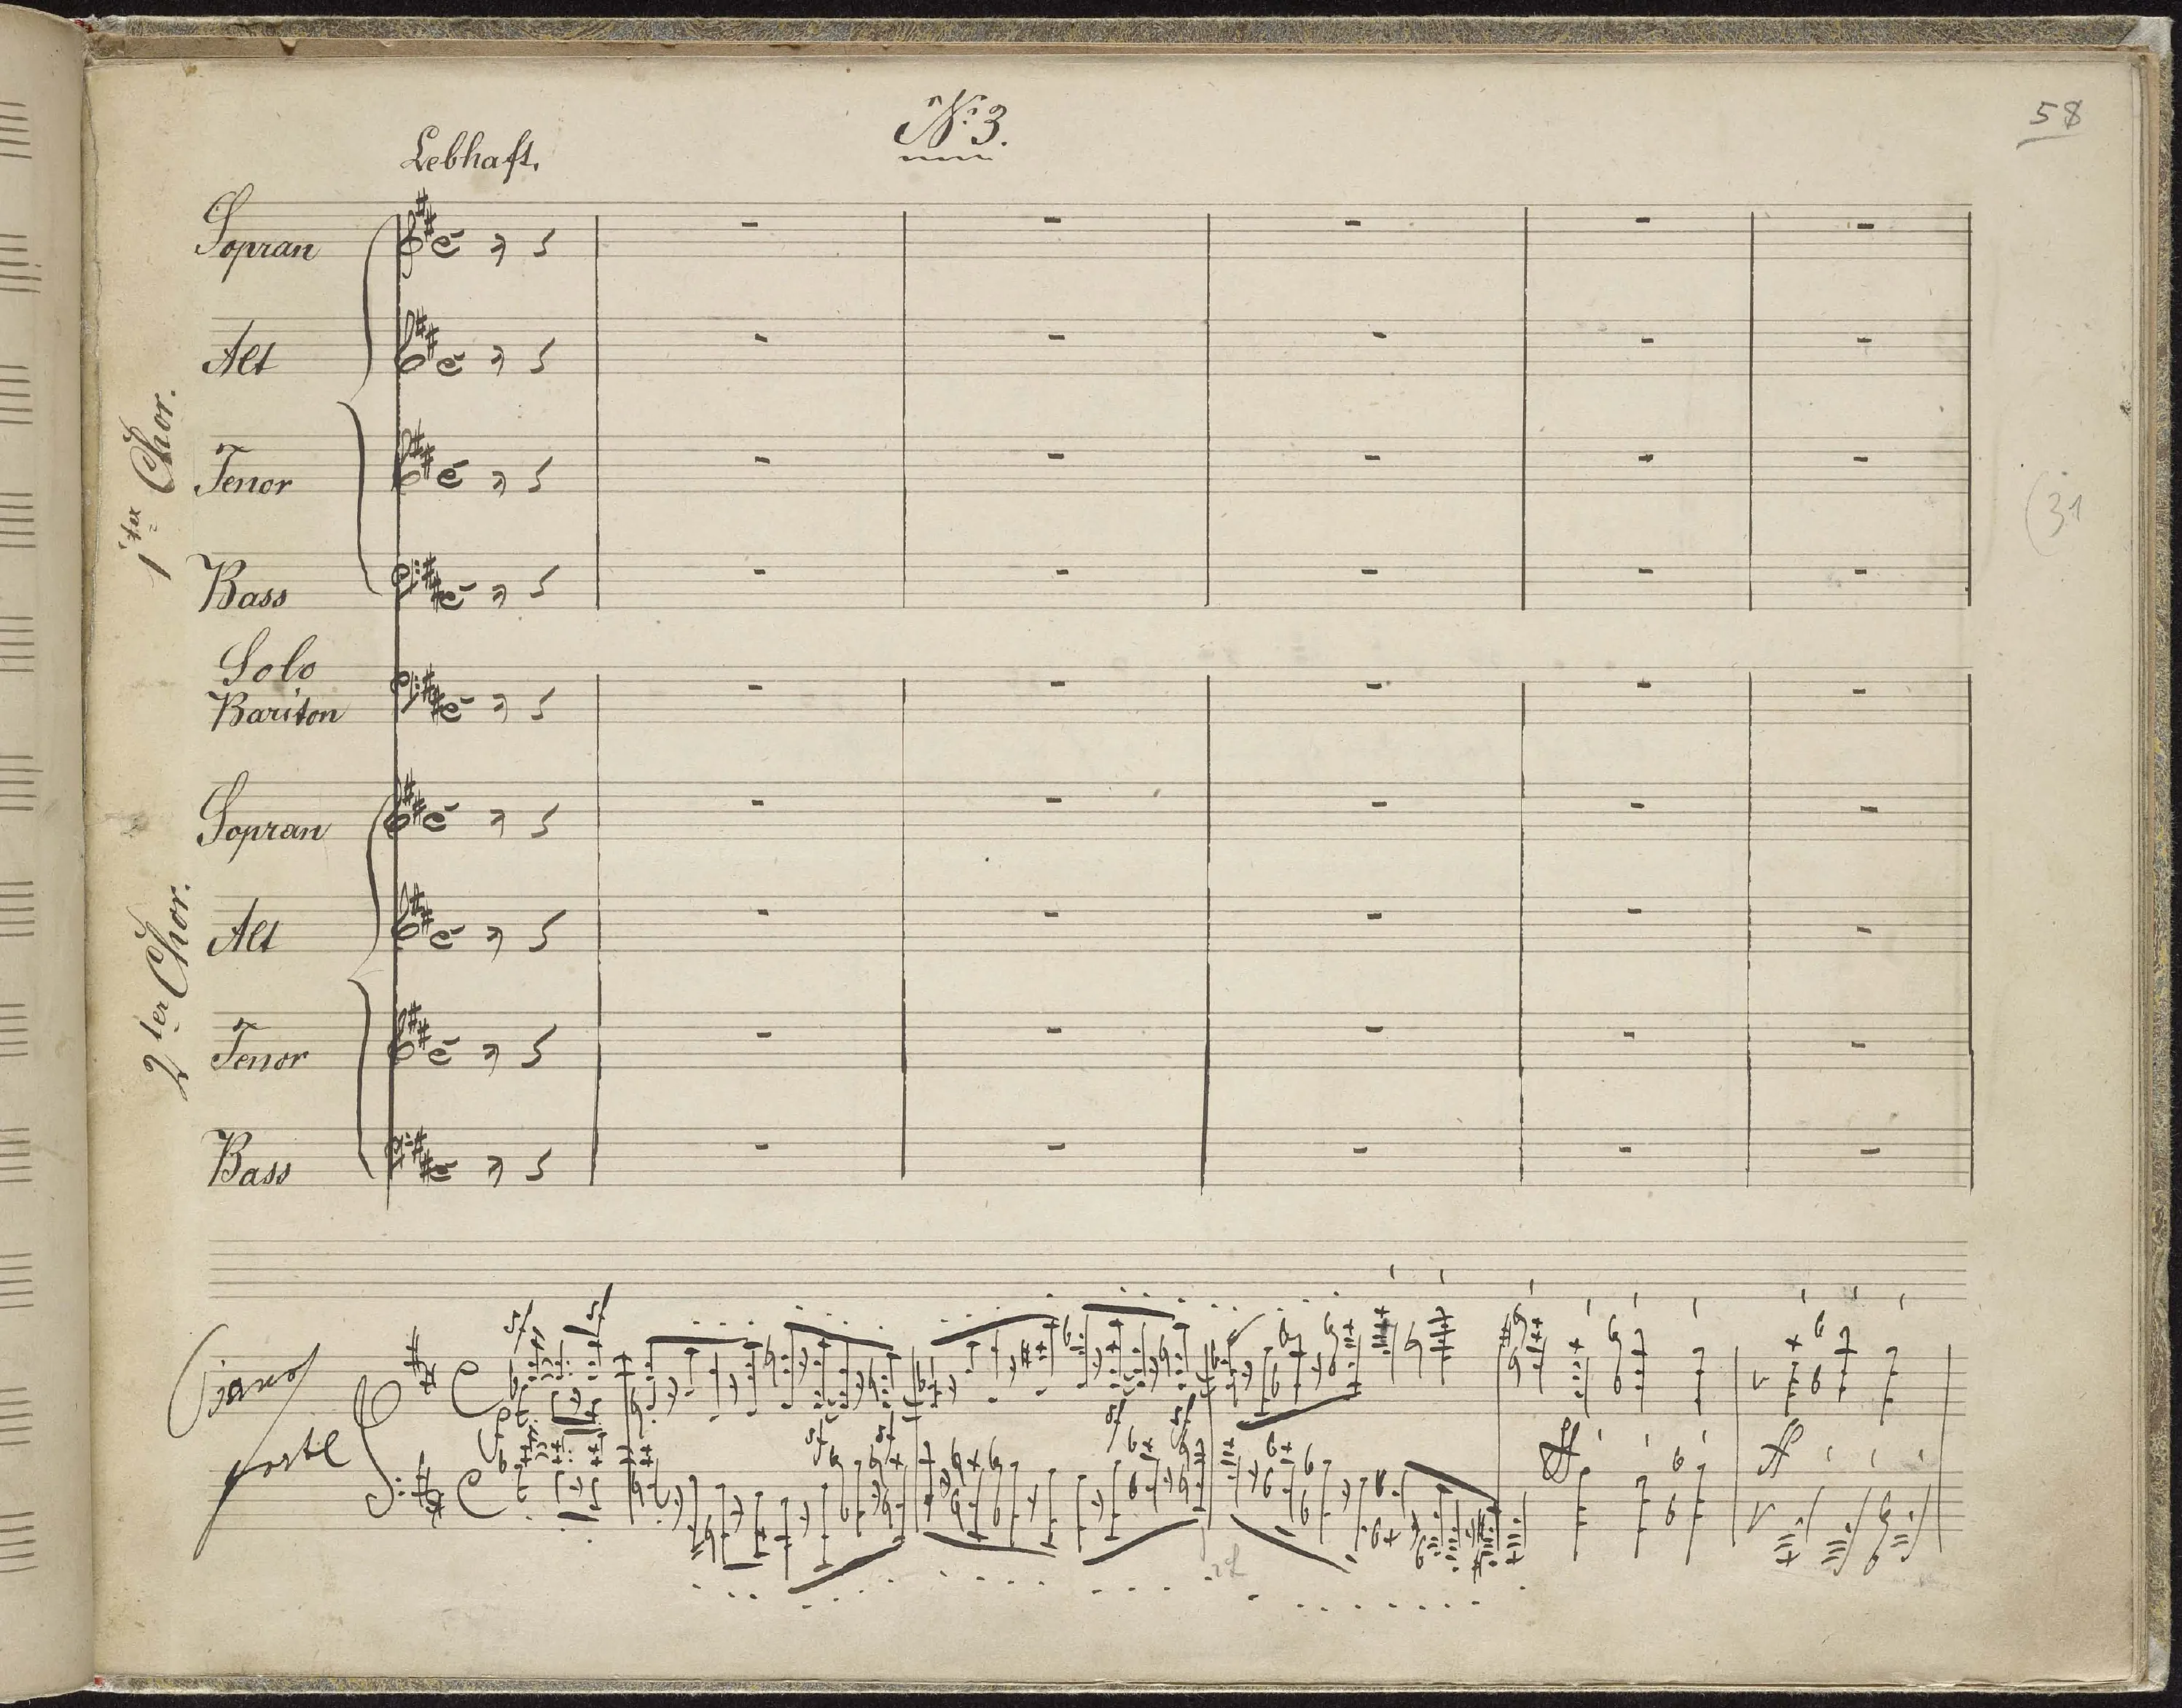 Nº 3.
58
Lebhaft.
1ter Chor.
Sopran
Alt
Tenor
Bass
(31
Solo
Bariton
2ter Chor.
Sopran
Alt
Tenor
Bass
Piano
forte
sf sf
sf sf sf sf
ff ff